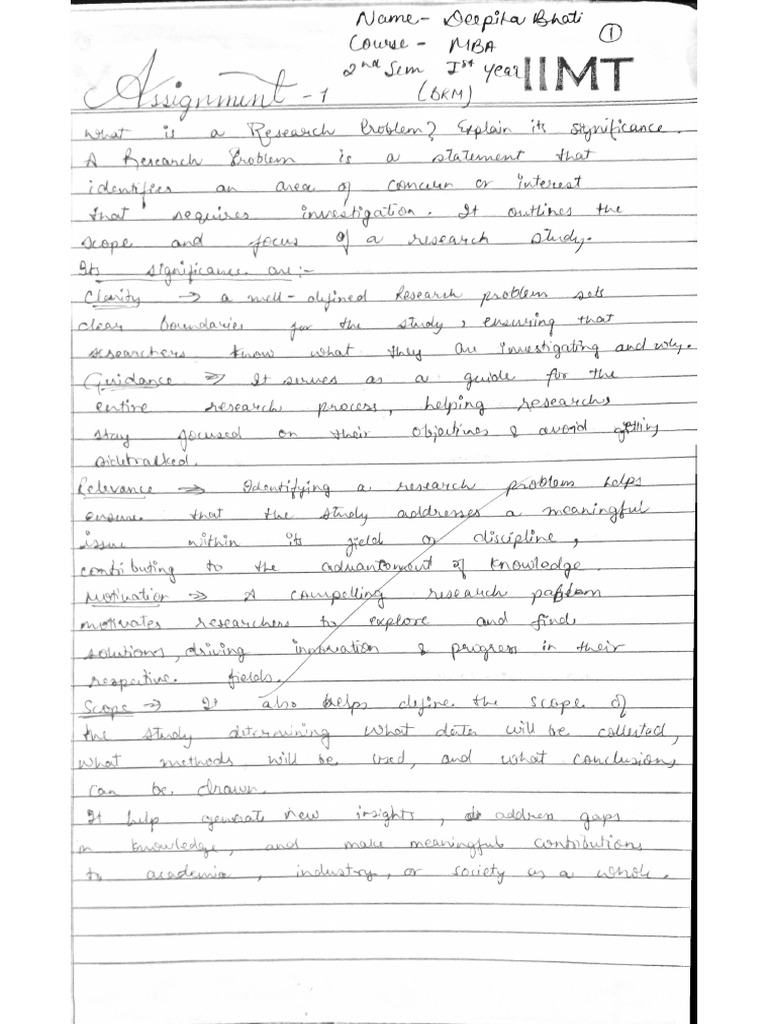 Name- Deepika Bhati
Course - MBA
①
2nd Sem Ist Year
IIMT
Assignment -1
What is a Research Problem? Explain its significance.
A Research Problem is a statement that
identifies an area of concern or interest
that requires investigation. It outlines the
scope and focus of a research study.
Its significance are:-
Clarity → a well-defined Research problem sets
clear boundaries for the study, ensuring that
researchers know what they are investigating and why.
Guidance → It serves as a guide for the
entire research process, helping researchs
stay focused on their objectives & avoid getting
sidetracked.
Relevance → Identifying a research problem helps
ensure that the study addresses a meaningful
issue within its field or discipline,
contributing to the advancement of knowledge.
Motivation → A compelling research problem
motivates researchers to explore and find
solutions, driving innovation & progress in their
respective fields.
Scope → It also helps define the scope of
the study determining what data will be collected,
what methods will be used, and what conclusions
can be drawn.
It help generate new insights, address gaps
in knowledge, and make meaningful contributions
to academia, industry, or society as a whole.